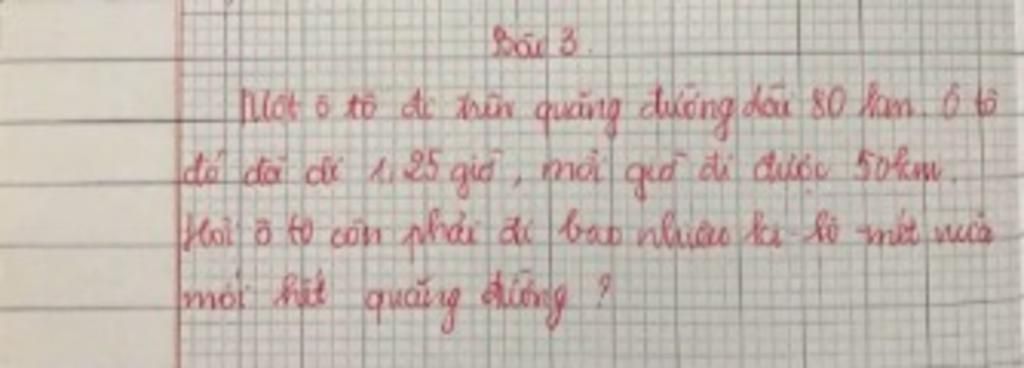 Bài 3.
Một ô tô đi trên quãng đường dài 80 km. Ô tô
đó đã đi 1,25 giờ, mỗi giờ đi được 50km.
Hỏi ô tô còn phải đi bao nhiêu ki-lô-mét nữa
mới hết quãng đường ?